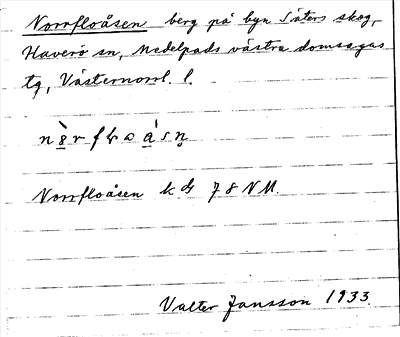 Norrfloåsen berg på byn Säters skog,
Haverö sn, Medelpads västra domsagas
tg, Västernorrl. l.
Norrfloåsen k bl 78 NM.
Valter Jansson 1933.